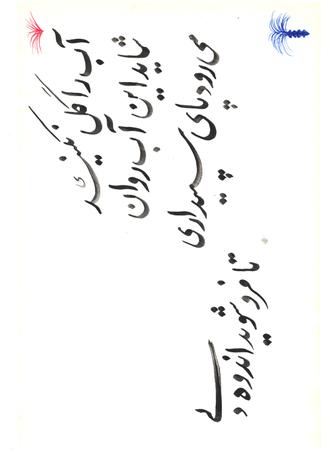 آب را گل نکنیدی
شاید این آب روان
می رود پای سپیداری
تا فرو شوید اندوه دلی